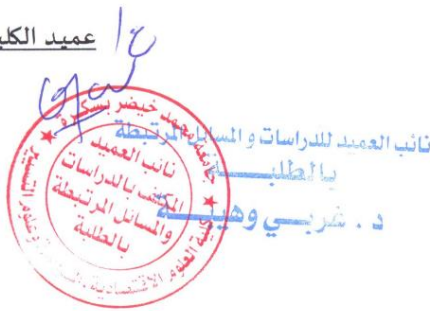 ع/ عميد الكلية
نائب العميد للدراسات و المسائل المرتبطة
بالطلبة
د . غربي وهيبة
جامعة محمد خيضر بسكرة
نائب العميد
المكلف بالدراسات
والمسائل المرتبطة
بالطلبة
كلية العلوم الاقتصادية